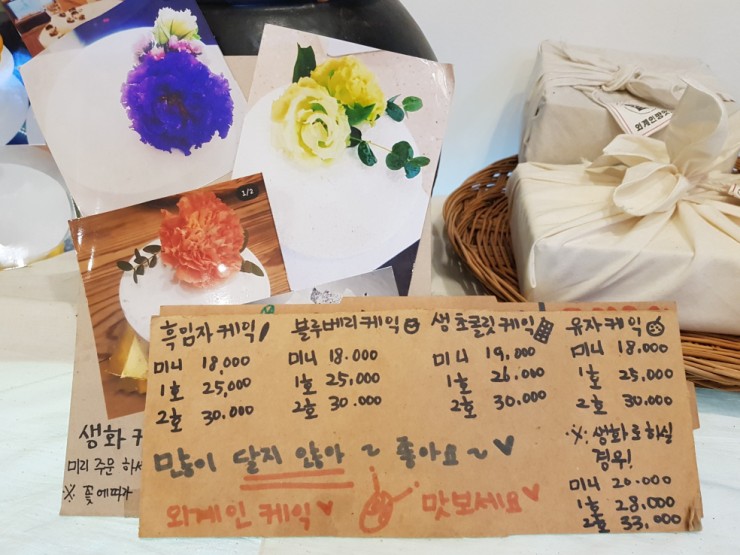 2/2
외계인방앗
흑임자 케익
미니 18,000
1호 25,000
2호 30.000
블루베리 케익
미니 18.000
1호 25,000
2호 30.000
생 초콜릿 케익
미니 19.000
1호 26.000
2호 30.000
유자 케익
미니 18.000
1호 25.000
2호 30.000
많이 달지 않아~ 좋아요~♥
외계인 케익♥ 맛보세요♥
※ 생화로 하실
경우!
미니 20.000
1호 28.000
2호 33.000
생화
미리 주문 하셔
※ 꽃에따라